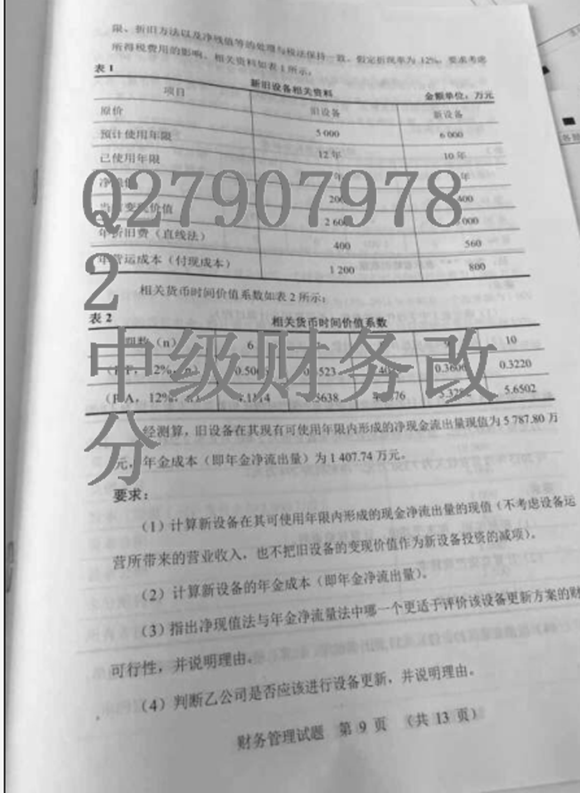 限、折旧方法以及净残值等的处理与税法保持一致，假定折现率为 12%，要求考虑
所得税费用的影响。相关资料如表 1 所示：
表 1 新旧设备相关资料 金额单位：万元
项目 旧设备 新设备
原价 5 000 6 000
预计使用年限 12 年 10 年
已使用年限 年 年
净 值 200 400
当 变现价值 2 600 000
年折旧费（直线法） 400 560
年营运成本（付现成本） 1 200 800
Q27907978
2
相关货币时间价值系数如表 2 所示：
表 2 相关货币时间价值系数
期数（n） 6 10
12%，n） 0.3606 0.3220
A，12%，n） 5.6502
中级财务改
分
经测算，旧设备在其现有可使用年限内形成的净现金流出量现值为 5 787.80 万
元，年金成本（即年金净流出量）为 1 407.74 万元。
要求：
（1）计算新设备在其可使用年限内形成的现金净流出量的现值（不考虑设备运
营所带来的营业收入，也不把旧设备的变现价值作为新设备投资的减项）。
（2）计算新设备的年金成本（即年金净流出量）。
（3）指出净现值法与年金净流量法中哪一个更适于评价该设备更新方案的财
可行性，并说明理由。
（4）判断乙公司是否应该进行设备更新，并说明理由。
财务管理试题 第 9 页 （共 13 页）